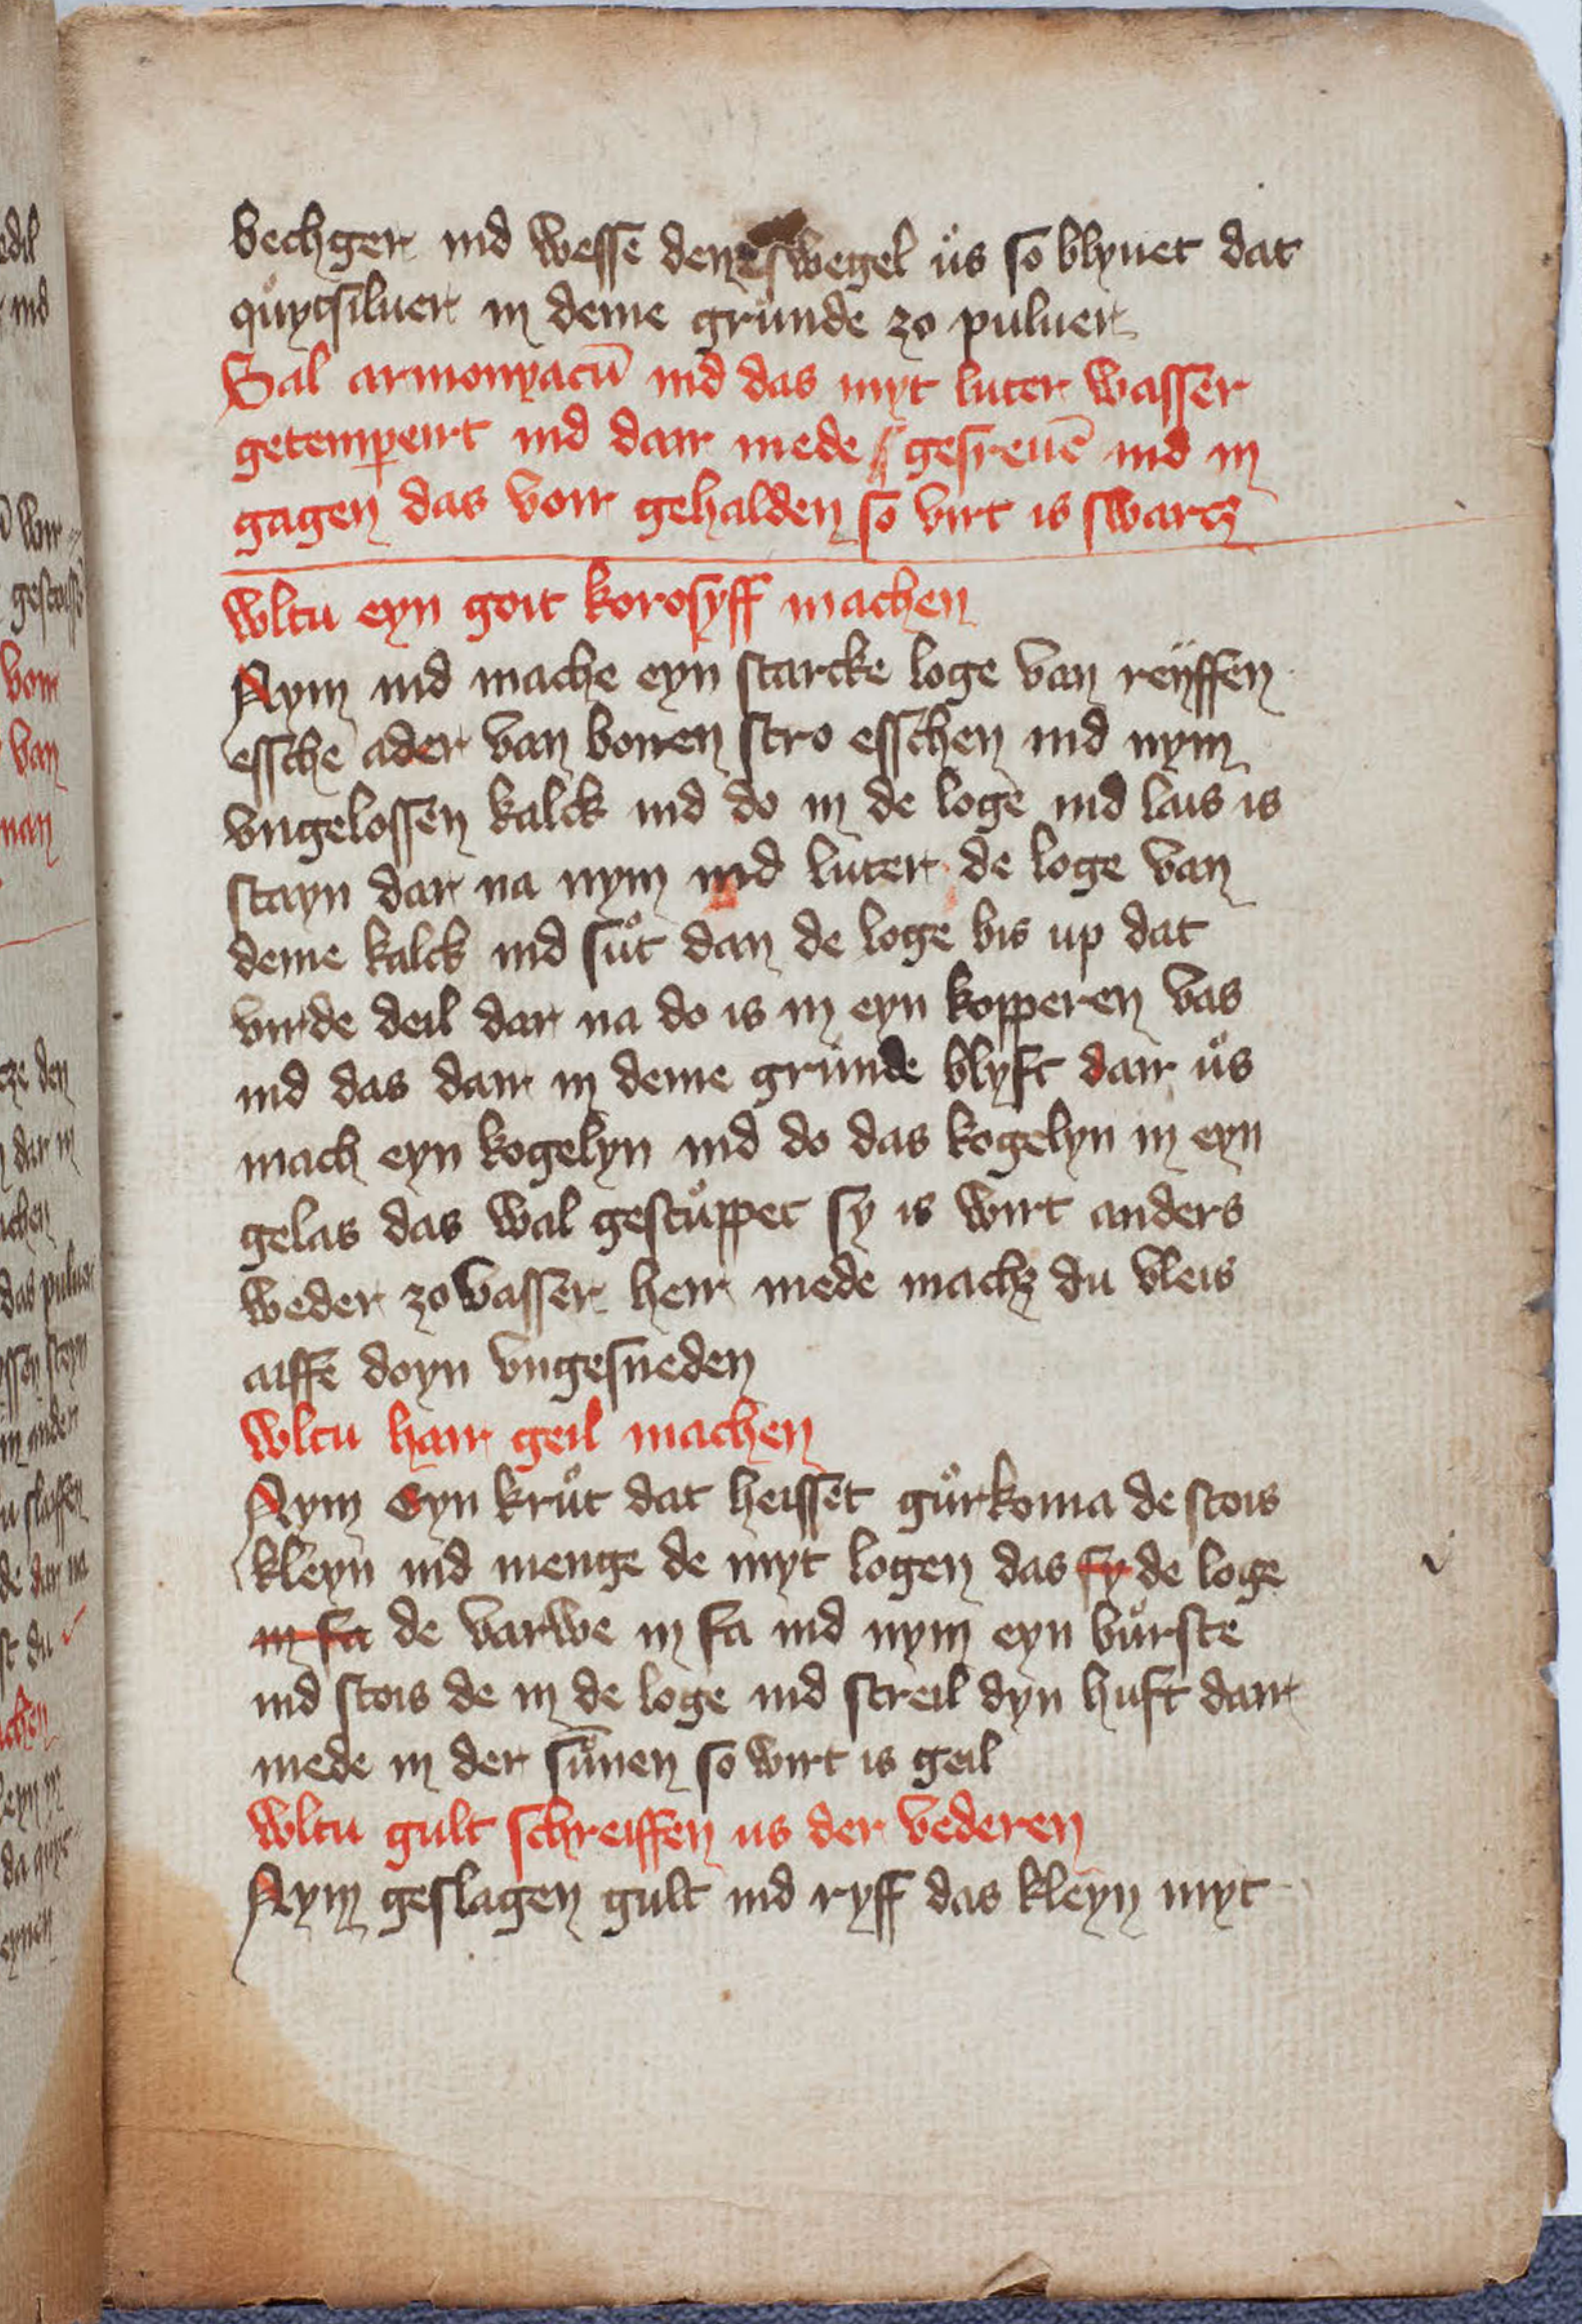 bechger ind wesse den swegel uͦs so blyuet dat
quͦycsiluer in deme gruͦnde zo puluer
Sal armonyacū ind das myt luter wasser
getemperirt ind dair mede gesreuē ind in
gagen das voir gehalden so virt is swartz
wltu eyn goit korosyff machen
Nym ind mache eyn starcke loge van reyffen
essche ader van bonen stro esschen ind nym
vngelossen kalck ind do in de loge ind lais is
stayn dar na nym ind luter de loge van
deme kalck ind suͦt dan de loge bis up dat
virde deil dar na do is in eyn kopperen vas
ind das dair in deme grunde blyft dair uͦs
mach eyn kogelyn ind do das kogelyn in eyn
gelas das wal gestuͦppet sy is wirt anders
weder zo wasser heir mede machz du vleis
aiffe doyn vngesneden
wltu hair geil machen
Nym eyn kruͦt dat heisset guͦrkoma de stois
kleyn ind menge de myt logen das sy de loge
in sa de varwe in sa ind nym eyn buͦrste
ind stois de in de loge ind streil dyn huft dair
mede in der suͦnen so wirt is geil
wltu gult schreiffen us der vederen
Nym geslagen gult ind ryff das kleyn myt